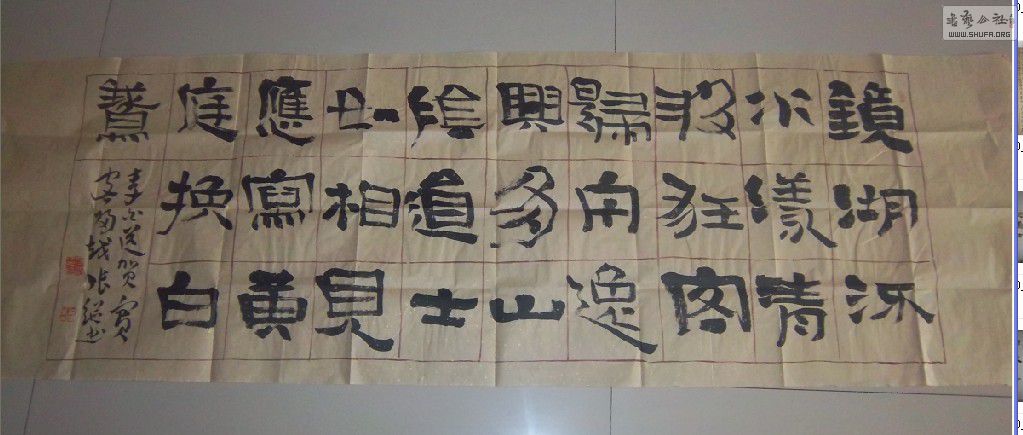 鏡湖流
水漾清
波狂客
歸舟逸
興多山
陰道士
如相見
應寫黃
庭換白
鵞
李白送賀賓
客歸越張書
书艺公社
WWW.SHUFA.ORG